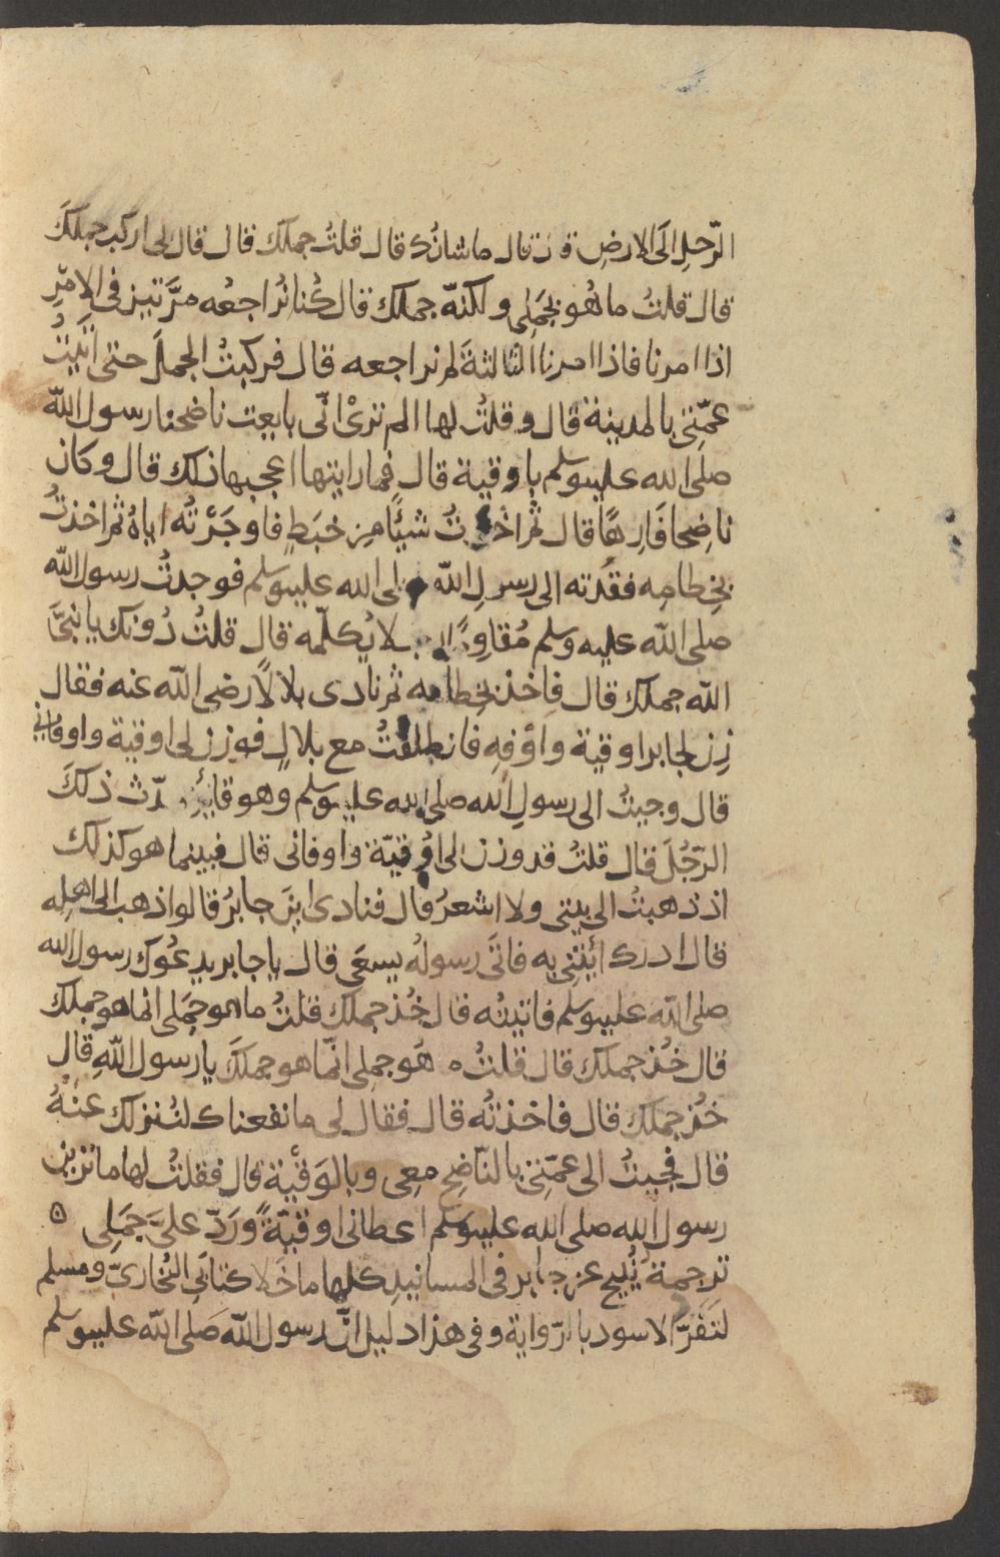 الرّحلِ الَى الارضِ قال ماشانُك قال قلتُ جملك قال قال لى اركب جملكَ
قال قلتُ ما هُو بجَمَلِى ولكنّه جملك قال كُنا نُراجعُه مرَّتين فى الامْرِ
اذا امرنا فاذا امرنا الثالثةَ لم نراجعه قال فركبتُ الجملَ حتى اتَيتُ
عمّتِى بالمدينة قال وقلتُ لها الم ترىْ انّى بايعت ناضحنا رسول اللّه
صلى الله عليه وسلم باوقية قال فما رايتها اعجبها ذلك قال وكان
ناضِحا فَارِهًا قال ثم اخذتُ شيًا مِن خبَطٍ فاوجَرْتُه اياهُ ثم اخذتُ
بخِطامِه فقُدته الى رسولِ اللّه صلى الله عليه وسلم فوجدتُ رسول اللّه
صلى اللّه عليه وسلم مُقاوِمًا يُكلّمه قال قلتُ دُونك يا نبىَّ
اللّه جملك قال فاخذ بخِطامِه ثم نادى بلالاً رضى اللّه عنه فقال
زِن لجابر اوقية واوْفِهِ فانطلقتُ مع بلالٍ فوزن لى اوقية واوفانى
قال وجيتُ الى رسولِ اللّه صلى الله عليه وسلم وهو قايم ذلكَ
الرّجُلَ قال قلتُ قد وزن لى اُوقيّة واوفانى قال فبينما هو كذلك
اذ ذهبتُ الى بيتى ولا اشعرُ قال فنادى اين جابرُ قالوا ذهب الى اهلِه
قال ادرك ائتِنى به فاتَى رسولهُ يسعَى قال يا جابر يدعُوك رسول الله
صلى اللّه عليه وسلم فاتيتُه قال خُذ جملك قلتُ ما هو جَمَلى انما هو جملك
قال خُذ جملك قال قلتُ هُو جملِى انّما هو جملكَ يا رسول اللّهِ قال
خُذ جملك قال فاخذتُه قال فقال لى ما نفعناك لنُنزلك عنْهُ
قال فجيتُ الى عمّتِى بالنّاضِح مِعى وبالوَقيّة قال فقلتُ لها ما ترين
رسول الله صلى الله عليه وسلم اعطانى اوقيّةً ورَدّ علىَّ جَمَلِى ه
ترجمة نُبيح عن جابر فى المسانيدِ كلها ما خَلا كتابَىِ البُخارىّ ومسلم
لتَفَرّد الاسود بالرّواية وفى هذا دليل انّ رسول اللّه صَلى اللّه عليه وسلم